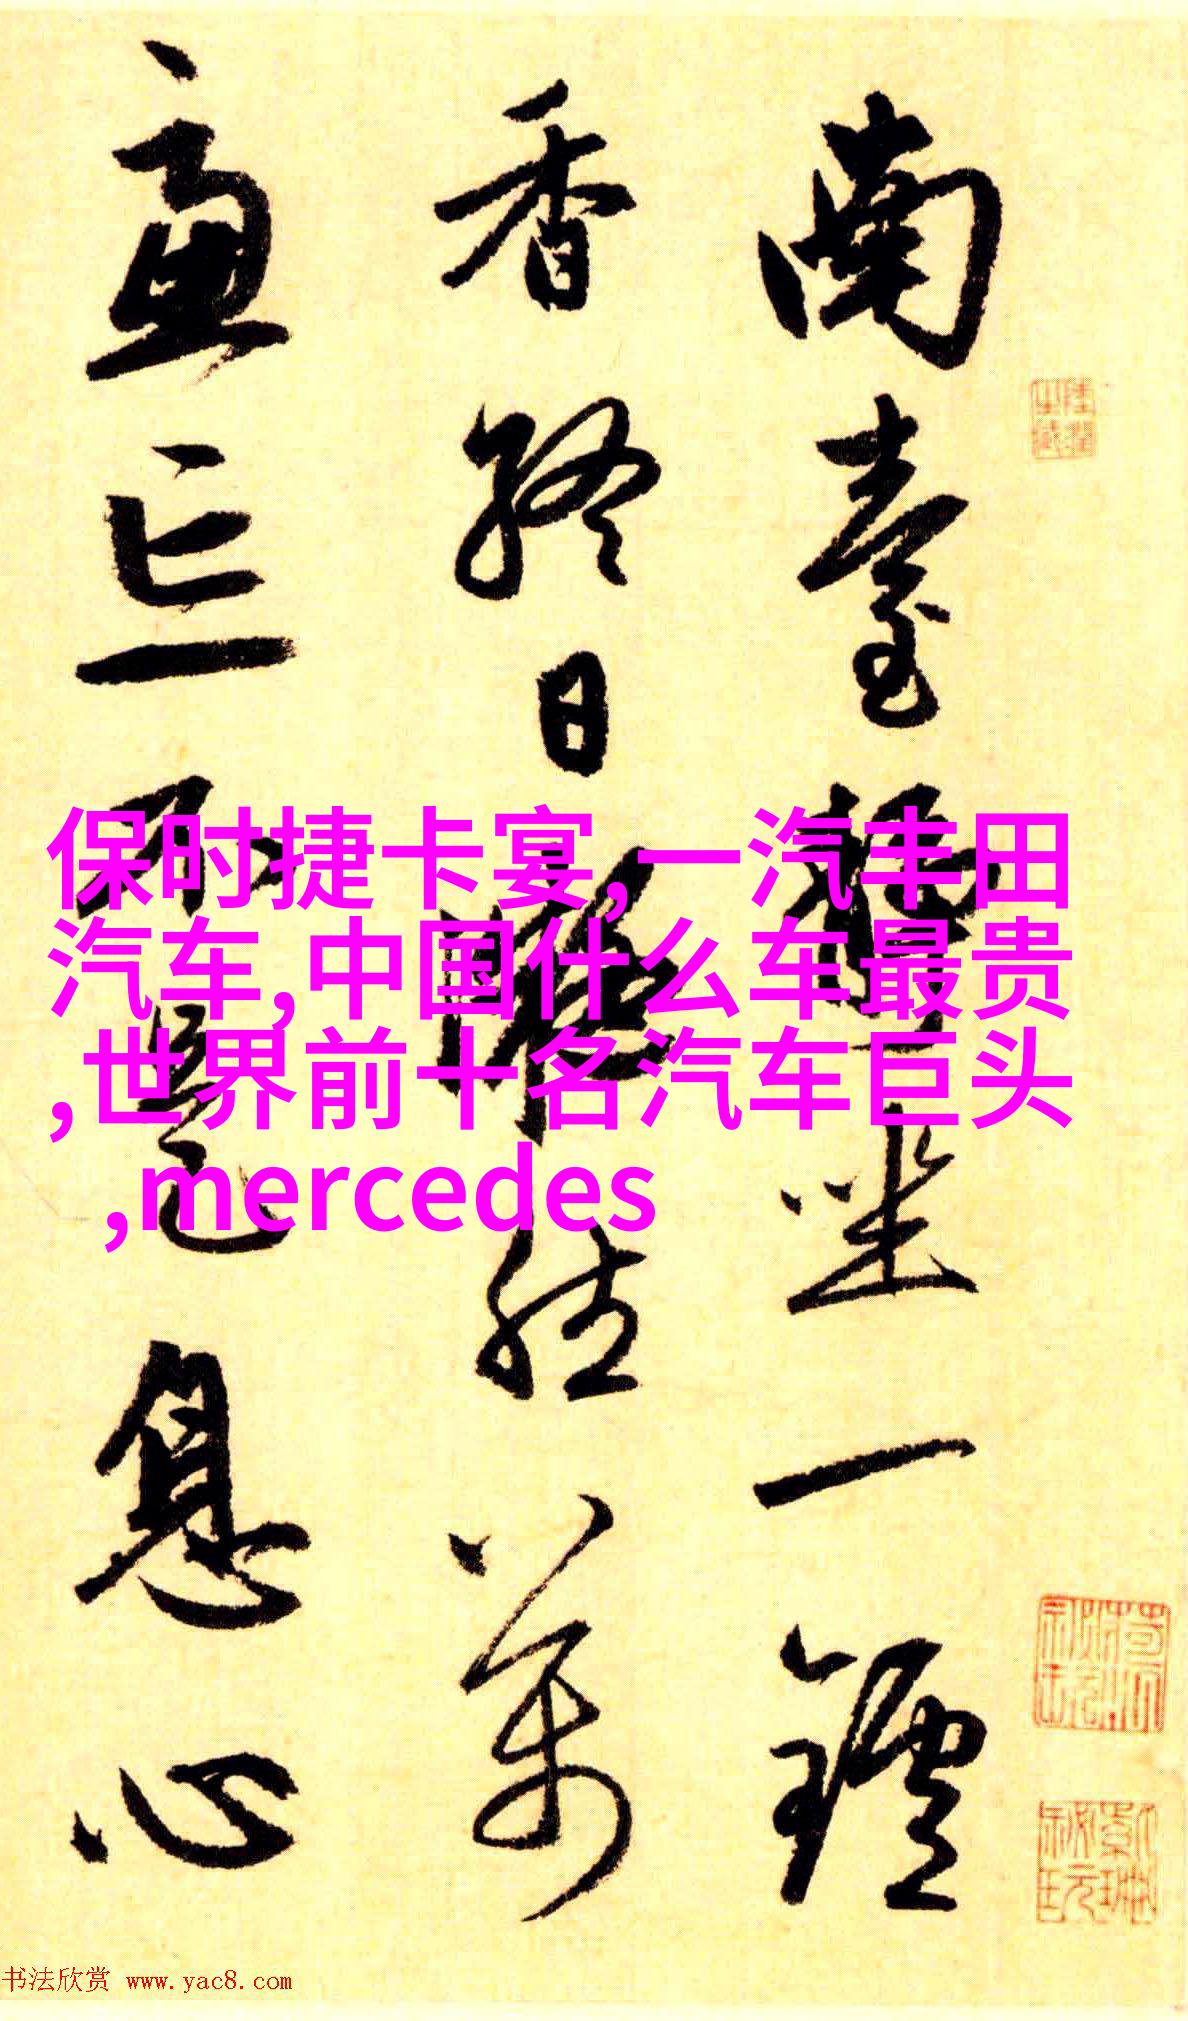 南臺靜坐一鑪
香終日凝然萬
慮亡不是息心
保时捷卡宴,一汽丰田
汽车,中国什么车最贵
,世界前十名汽车巨头
,mercedes
书法欣赏 www.yac8.com